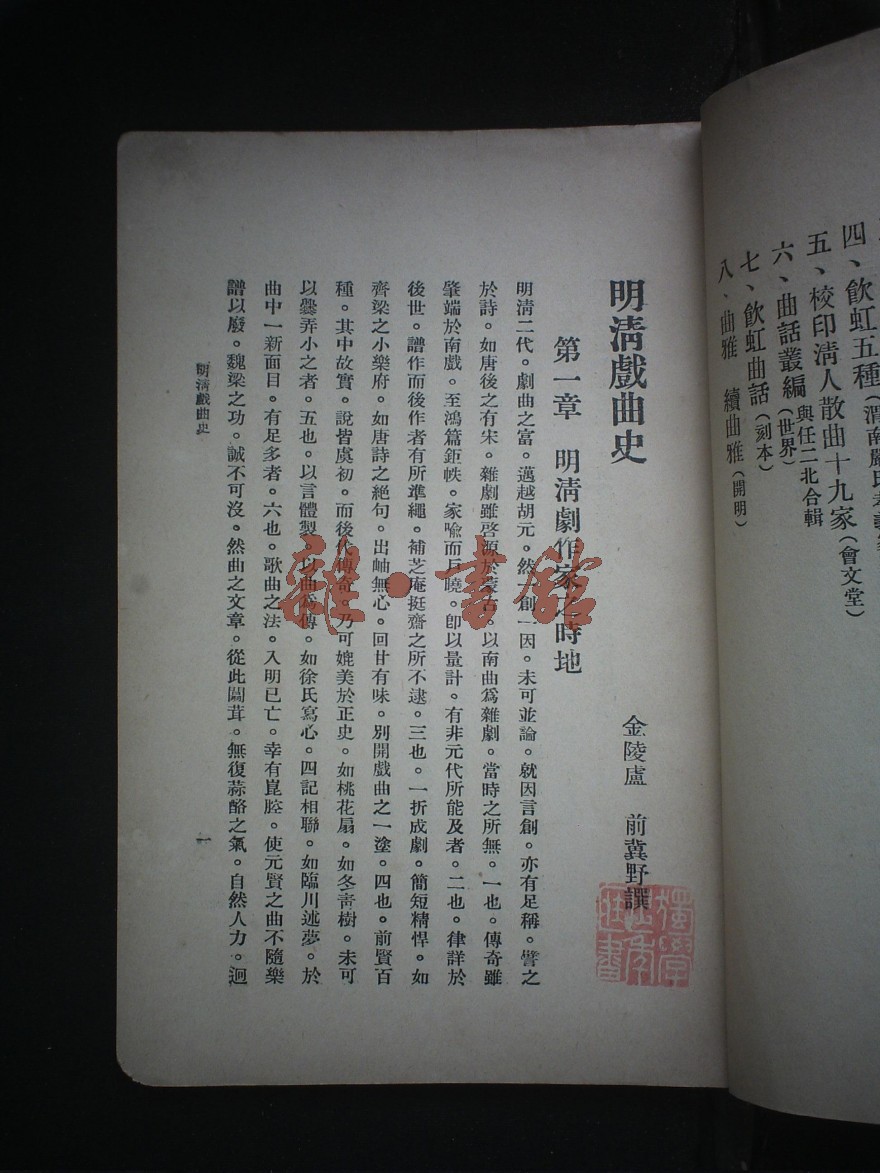 四、飲虹五種
五、校印清人散曲十九家（會文堂）
六、曲話叢編 與任二北合輯（世界）
七、飲虹曲話（刻本）
八、曲雅 續曲雅（開明）
明清戲曲史
金陵盧 前冀野譔
第一章 明清劇作家之時地
明清二代。劇曲之富。邁越胡元。然一創一因。未可並論。就因言創。亦有足稱。譬之
於詩。如唐後之有宋。雜劇雖啓源於蒙古。以南曲爲雜劇。當時之所無。一也。傳奇雖
肇端於南戲。至鴻篇鉅帙。家喩而戶曉。卽以量計。有非元代所能及者。二也。律詳於
後世。譜作而後作者有所準繩。補芝庵挺齋之所不逮。三也。一折成劇。簡短精悍。如
齊梁之小樂府。如唐詩之絕句。出岫無心。回甘有味。別開戲曲之一塗。四也。前賢百
種。其中故實。說皆虞初。而後代傳奇。乃可媲美於正史。如桃花扇。如冬靑樹。未可
以爨弄小之者。五也。以言體製。以曲爲傳。如徐氏寫心。四記相聯。如臨川述夢。於
曲中一新面目。有足多者。六也。歌曲之法。入明已亡。幸有崑腔。使元賢之曲不隨樂
譜以廢。魏梁之功。誠不可沒。然曲之文章。從此闒茸。無復蒜酪之氣。自然人力。迴
明清戲曲史
一
雜·書館